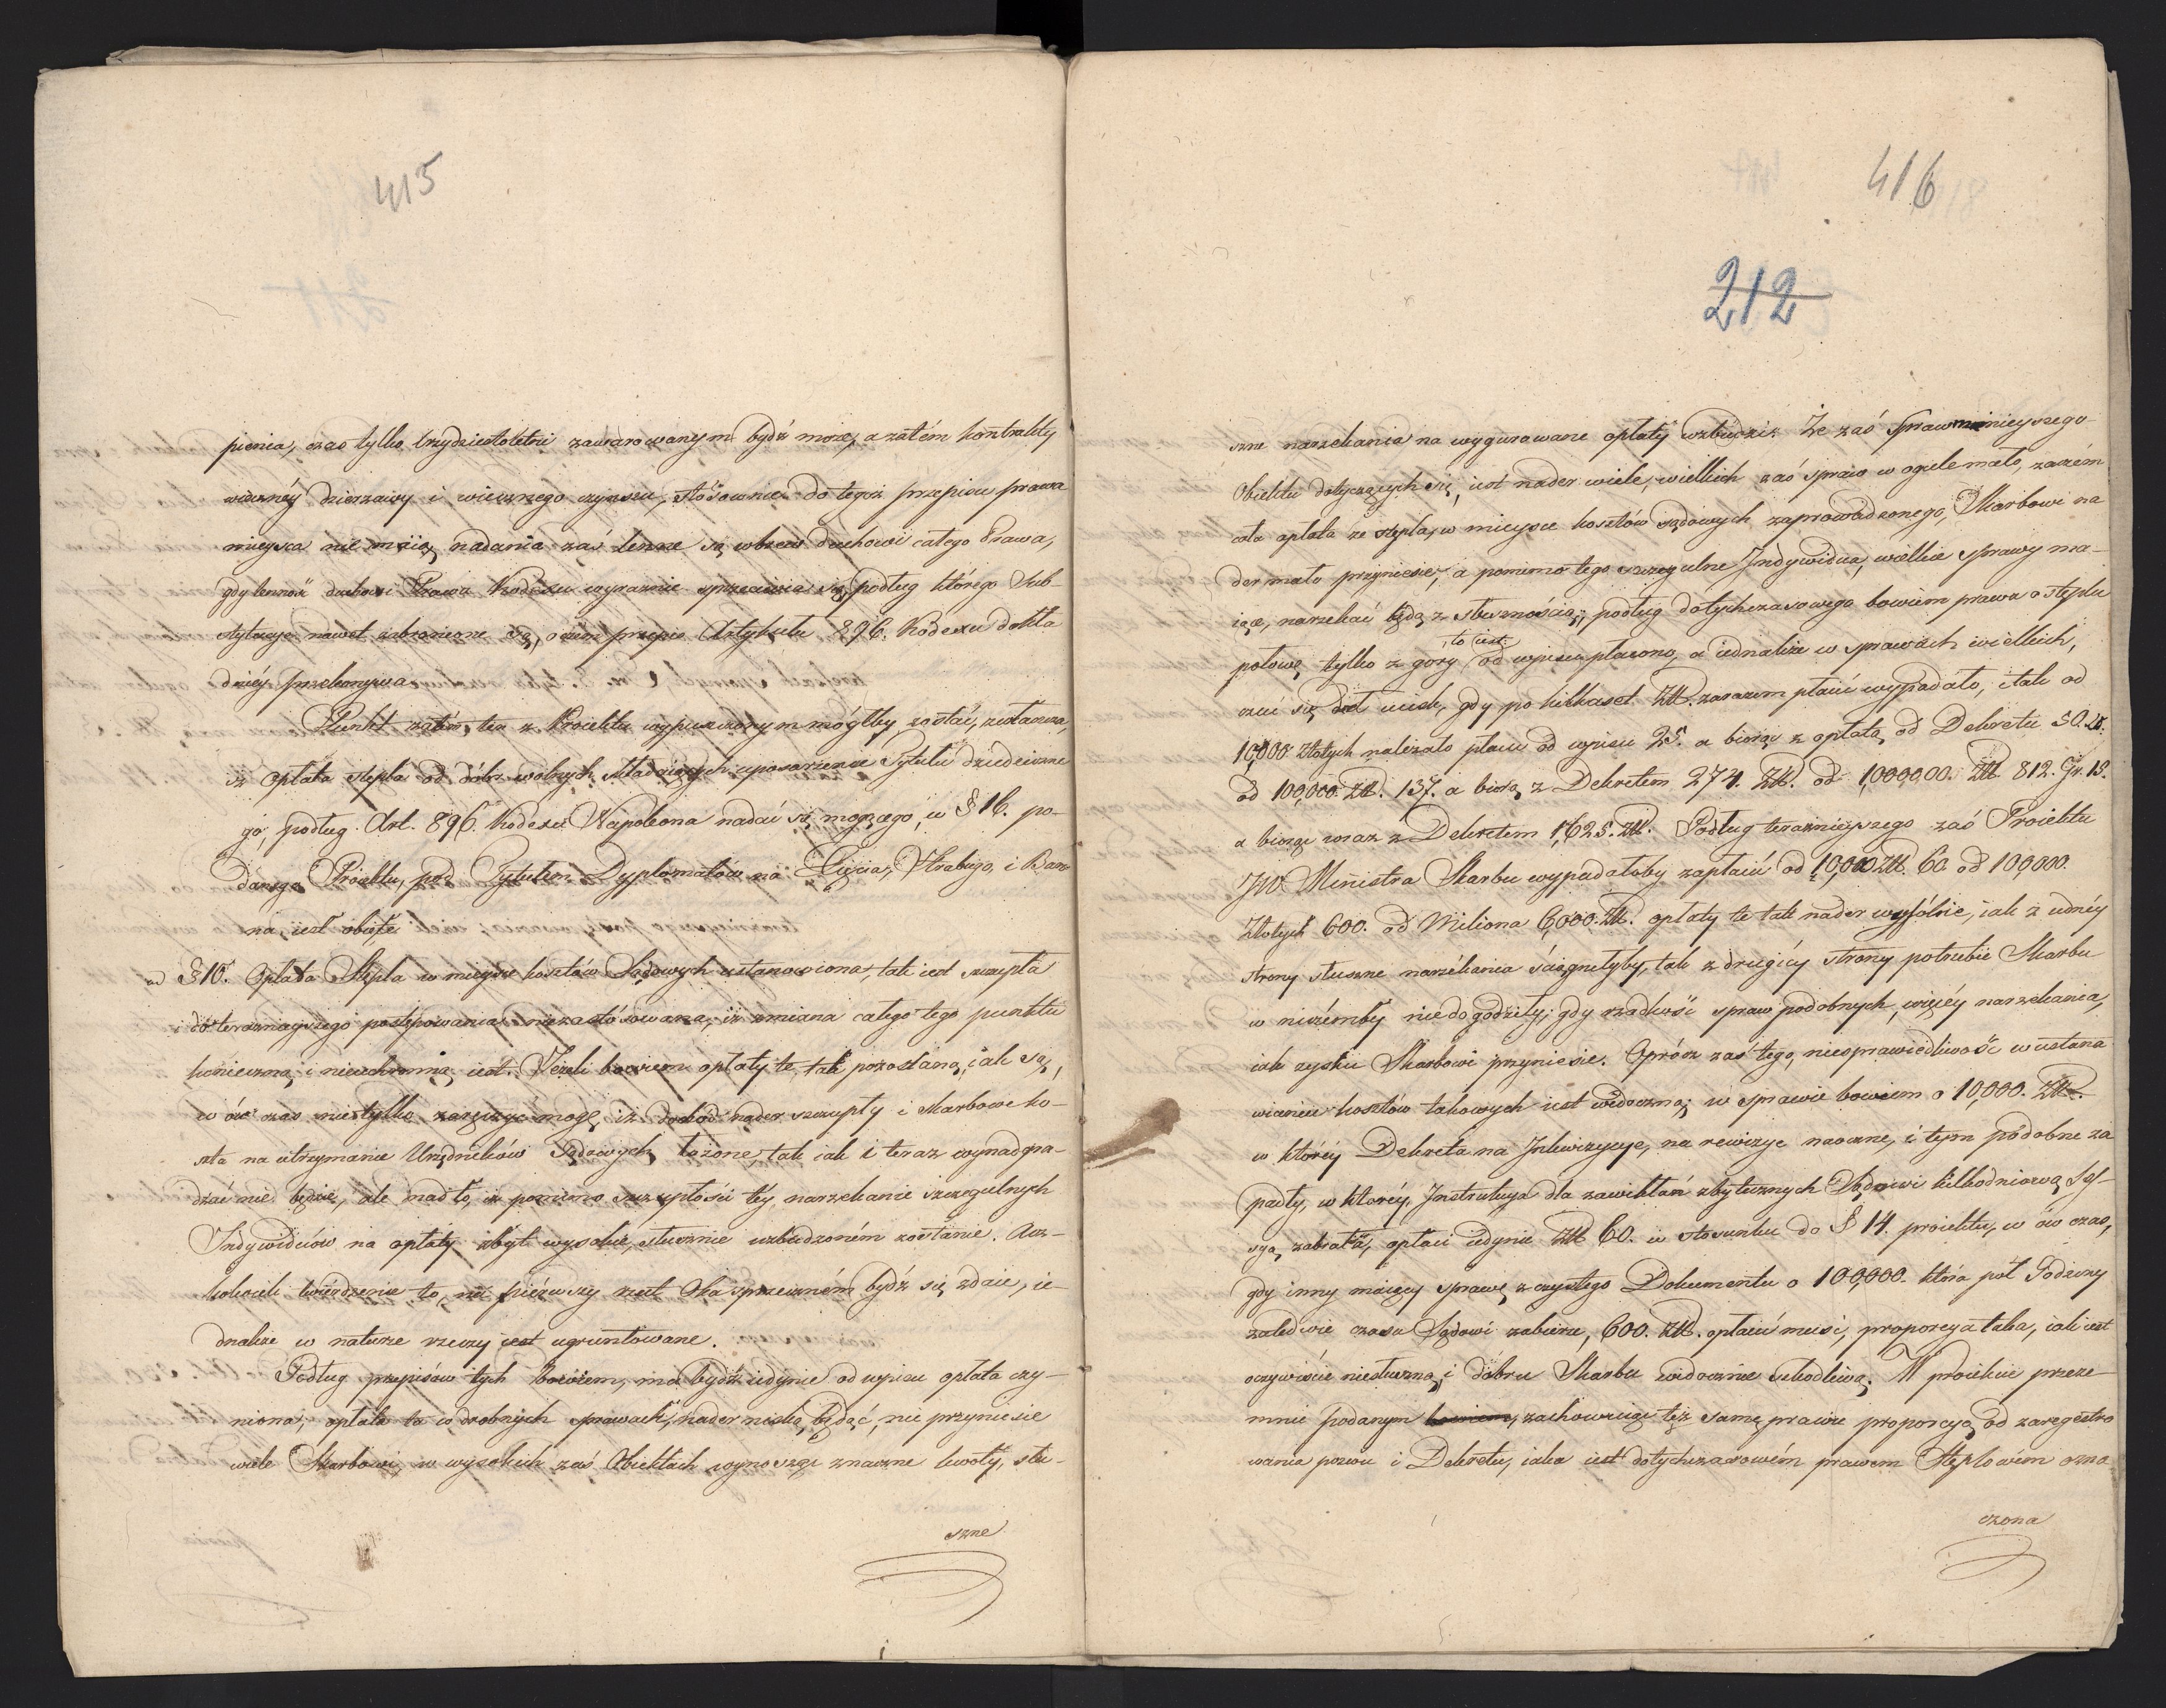 415
pienia, czas tylko trzydziestoletni zawarowanym bydź może, a zatém kontrakty
wieczney dzierzawy i wiecznego czynszu, stósownie do tegoż przepisu prawa
mieysca nie maią, nadania zaś lenne są wbrew duchowi całego Prawa,
gdy lenność duchowi Prawa Kodexu wyraznie sprzeciwia się, podług którego Sub-
stytucye nawet zabronione są, o czém przepis Artykułu 896. Kodexu dokła
dniéy przekonywa.
Punkt zatém ten z Proiektu wypuszczonym mógłby zostać, zwłaszcza,
iż opłata stępla od dóbr wolnych składaiących uposażenie Tytułu dziedziczne
go, podług Art. 896. Kodexu Napoleona nadać się mogącego, w § 16. po-
danego Proiektu, pod Tytułem Dyplomatów na Xięcia, Hrabiego, i Baro
na, iest obięte
ad § 10. Opłata Stępla w mieysce kosztów Sądowych ustanowiona, tak iest szczupła
i do teraznieyszego postępowania niezastósowana, iż zmiana całego tego punktu
konieczną i nieuchronną iest. Jeżeli bowiem opłaty te, tak pozostaną, iak są,
w ów czas nie tylko zaręczyć mogę, iż dochód nader szczupły i Skarbowe ko-
szta na utrzymanie Urzędników Sądowych łożone, tak iak i teraz wynadgra-
dzać nie będzie, ale nad to, iż pomimo szczupłości téy, narzekanie szczegulnych
Indywiduów na opłaty zbyt wysokie, słusznie wzbudzoném zostanie. Acz-
kolwiek twierdzenie to, na piérwszy rzut Oka sprzeczném bydź się zdaie, ie-
dnakże w naturze rzeczy iest ugruntowane.
Podług przepisów tych bowiem, ma bydź iedynie od wpisu opłata czy-
niona, opłata ta w drobnych sprawach, nader niską będąc, nie przyniesie
wiele Skarbowi, w wysokich zaś Obiektach wynosząc znaczne kwoty, słu-
szne
416
212
szne narzekania na wygurowane opłaty wzbudzi. Że zaś Spraw mnieyszego
Obiektu dotyczących się, iest nader wiele, wielkich zaś spraw w ogule mało, zaczém
cała opłata ze stępla, w mieysce kosztów sądowych zaprowadzonego, Skarbowi na
der mało przyniesie, a pomimo tego szczegulne Indywidua, wielkie sprawy ma-
iące, narzekać będą z słusznością; podług dotychczasowego bowiem prawa o stęplu
połowę tylko z góry to iest od wpisu płacono, a iednakże w sprawach wielkich,
czuć się dał ucisk, gdy po kilkaset Złł. zarazem płacić wypadało, i tak od
10,000 Złotych należało płacić od wpisu 25. a biorąc z opłatą od Dekretu 50. Zł.
od 100,000. Złł. 137. a biorąc z Dekretem 274. Złł. od 1,000,000. Złł. 812. Gr. 15.
a biorąc wraz z Dekretem 1,625. Złł. Podług teraznieyszego zaś Proiektu
JW. Ministra Skarbu wypadałoby zapłacić od 10,000 Złł. 60. od 100,000.
Złotych 600. od Miliona 6,000. Złł. opłaty te tak nader wysokie, iak z iednéy
strony słuszne narzékania ściągnęłyby, tak z drugiéy strony potrzebie Skarbu
w niczémby nie dogodziły; gdy rzadkość spraw podobnych, więcéy narzekania,
iak zysku Skarbowi przyniesie. Oprócz zaś tego, niesprawiedliwość w ustana
wianiu kosztów takowych iest widoczną; w sprawie bowiem o 10,000. Złł.
w któréy Dekreta na Inkwizycye, na rewizye naoczne, i tym podobne za
padły, w któréy Instrukcya dla zawikłań zbytecznych Sądowi kilkodniową Ses-
syą zabrała, opłaci iedynie Złł 60. w stosunku do § 14. proiektu, w ów czas,
gdy inny maiący sprawę z czystego Dokumentu o 100,000. która pół Godziny
zaledwie czasu Sądowi zabierze, 600. Złł. opłacić musi, proporcya taka, iak iest
oczywiście niesłuszną, i dobru Skarbu widocznie szkodliwą. W proiekcie przeze
mnie podanym, zachowuiąc téż samę prawie proporcyą od zaregestro
wania pozwu i Dekretu, iaka iest dotychczasowém prawem Stęplowém ozna
czona